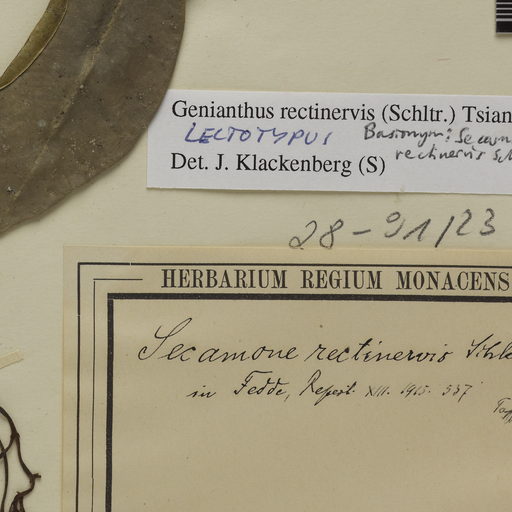 Genianthus rectinervis (Schltr.) Tsian
LECTOTYPUS Basionym: Secamo
rectinervis Sch
Det. J. Klackenberg (S)
28-91/23
HERBARIUM REGIUM MONACENS
Secamone rectinervis Schle
in Fedde, Repert. XIII. 1915. 537